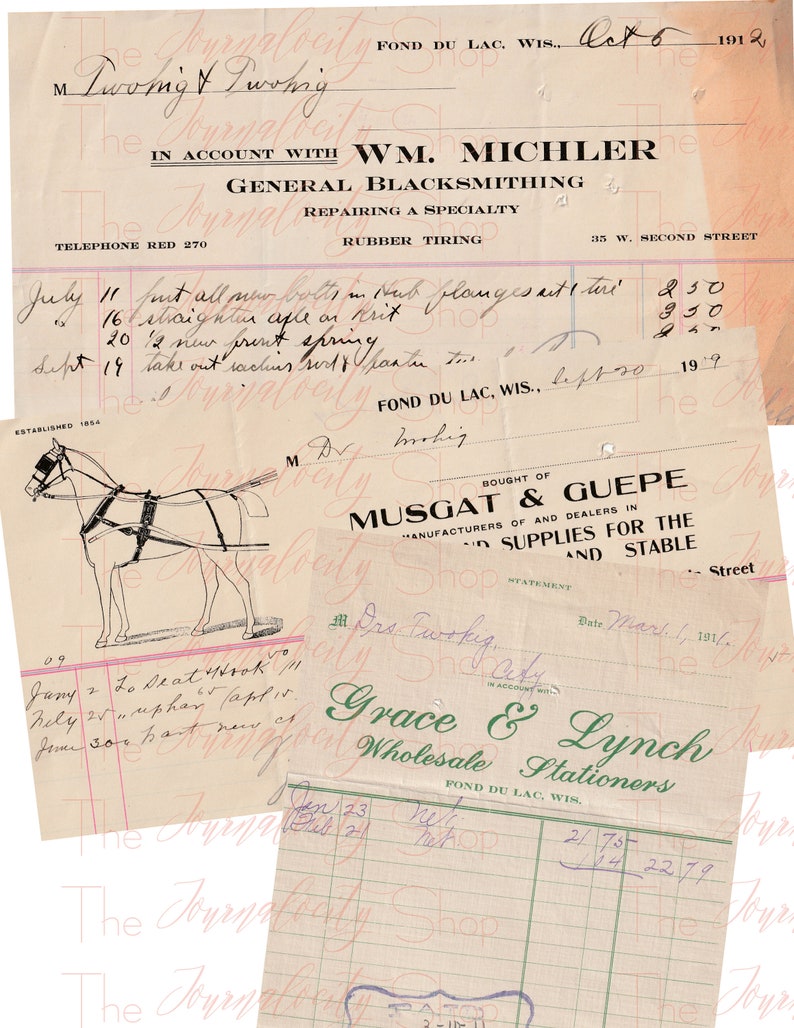 FOND DU LAC, WIS., Oct 5 1912
M Twohig & Twohig
IN ACCOUNT WITH WM. MICHLER
GENERAL BLACKSMITHING
REPAIRING A SPECIALTY
TELEPHONE RED 270 RUBBER TIRING 35 W. SECOND STREET
July 11 put all new bolts in Hub flanges set 1 tire 2 50
" 16 straighten axle on Krit 3 50
20 1/2 new front spring
Sept 19 take out radius rod &
FOND DU LAC, WIS., Sept 20 1909
M Dr Twohig
BOUGHT OF
MUSGAT & GUEPE
MANUFACTURERS OF AND DEALERS IN
ND SUPPLIES FOR THE
AND STABLE
Street
ESTABLISHED 1854
09
June 30
STATEMENT
M Drs. Twohig, Date Mar. 1, 1911.
City
IN ACCOUNT WITH
Grace & Lynch
Wholesale Stationers
FOND DU LAC, WIS.
Jan 23 Net. 21 75
Feb 21 Net 1 04 22 79
PAID
3-10-11
The Journalocity Shop